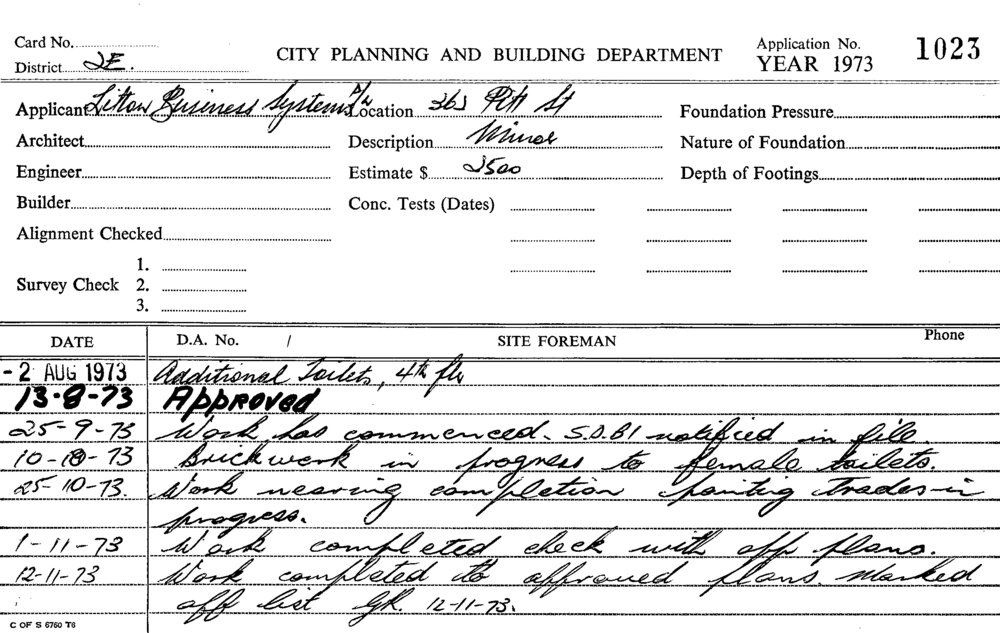 Card No.
District 2E.
CITY PLANNING AND BUILDING DEPARTMENT
Application No. 1023
YEAR 1973
Applicant Litton Business Systems P/L Location 363 Pitt St Foundation Pressure
Architect Description Minor Nature of Foundation
Engineer Estimate $ 2500 Depth of Footings
Builder Conc. Tests (Dates)
Alignment Checked
Survey Check 1.
2.
3.
DATE D.A. No. / SITE FOREMAN Phone
- 2 AUG 1973 Additional Toilets, 4th flr
13·8-73 Approved
25-9-73 Work has commenced. S.D.BI notified in file.
10-10-73 Brickwork in progress to female toilets.
25-10-73. Work nearing completion trades in
progress.
1-11-73 Work completed check with app plans.
12-11-73 Work completed to approved plans. Marked
off list GK. 12-11-73.
C OF S 6760 T6